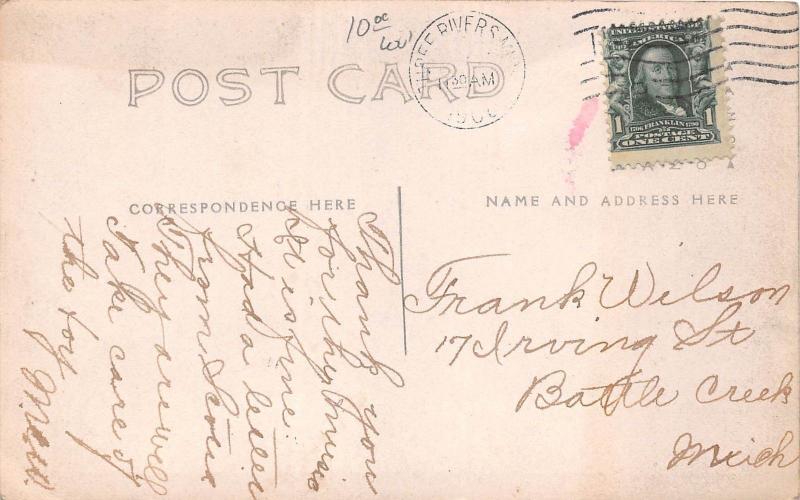 10 00
THREE RIVERS MICH
11 30 AM
UNITED STATES OF AMERICA
1706 FRANKLIN 1790
1 POSTAGE 1
ONE CENT
POST CARD
CORRESPONDENCE HERE
NAME AND ADDRESS HERE
Thank you
for the music
it is fine.
Had a letter
from Scout
They are will
take care of
the boy
Frank Wilson
17 Irving St
Battle Creek
Mich